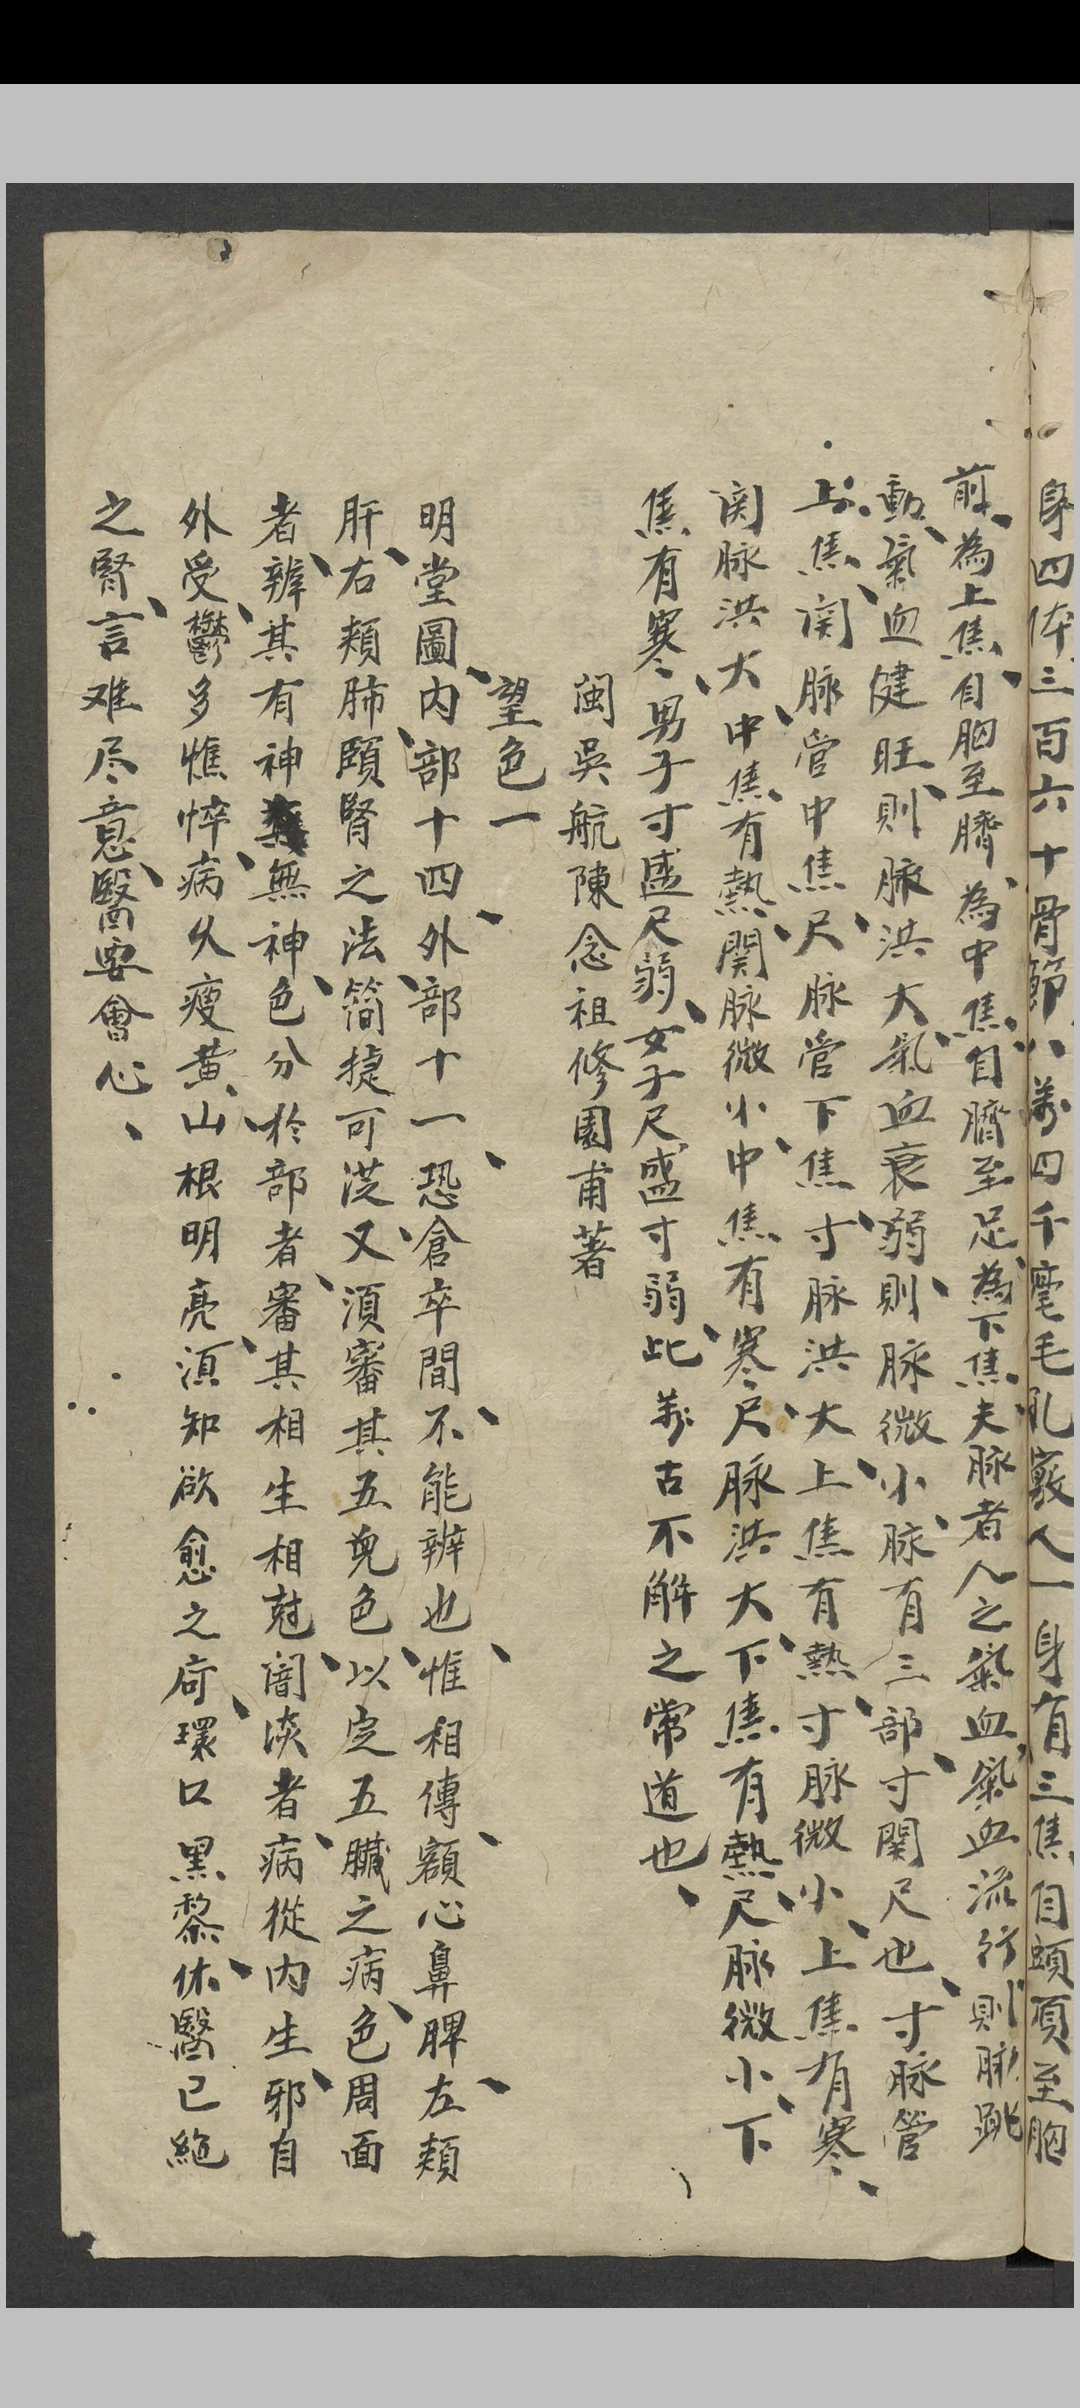 身四体三百六十骨節八万四千毫毛孔竅人一身有三焦自頭項至胸
前為上焦自胸至臍為中焦自臍至足為下焦夫脉者人之氣血氣血流行則脉跳
動氣血健旺則脉洪大氣血衰弱則脉微小脉有三部寸関尺也寸脉管
上焦関脉管中焦尺脉管下焦寸脉洪大上焦有熱寸脉微小上焦有寒
関脉洪大中焦有熱関脉微小中焦有寒尺脉洪大下焦有熱尺脉微小下
焦有寒男子寸盛尺弱女子尺盛寸弱比万古不解之常道也
閩吳航陳念祖修園甫著
望色一
明堂圖内部十四外部十一恐倉卒間不能辨也惟相傳額心鼻脾左頰
肝右頰肺頤腎之法簡捷可從又須審其五色以定五臟之病色周面
者辨其有神無神色分於部者審其相生相尅闇淡者病從内生邪自
外受鬱多憔悴病久瘦黃山根明亮須知欲愈之疴環口黑黎休醫已絶
之腎言难尽意醫要會心